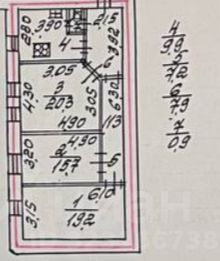 2.80
3.90
4
2.15
3.92
6
3.05
3
20.3
4.30
3.05
6.30
4.90
11.3
4.90
2
15.7
3.20
5
6.10
1
19.2
3.15
4
9.9
5
7.2
6
7.9
7
0.9